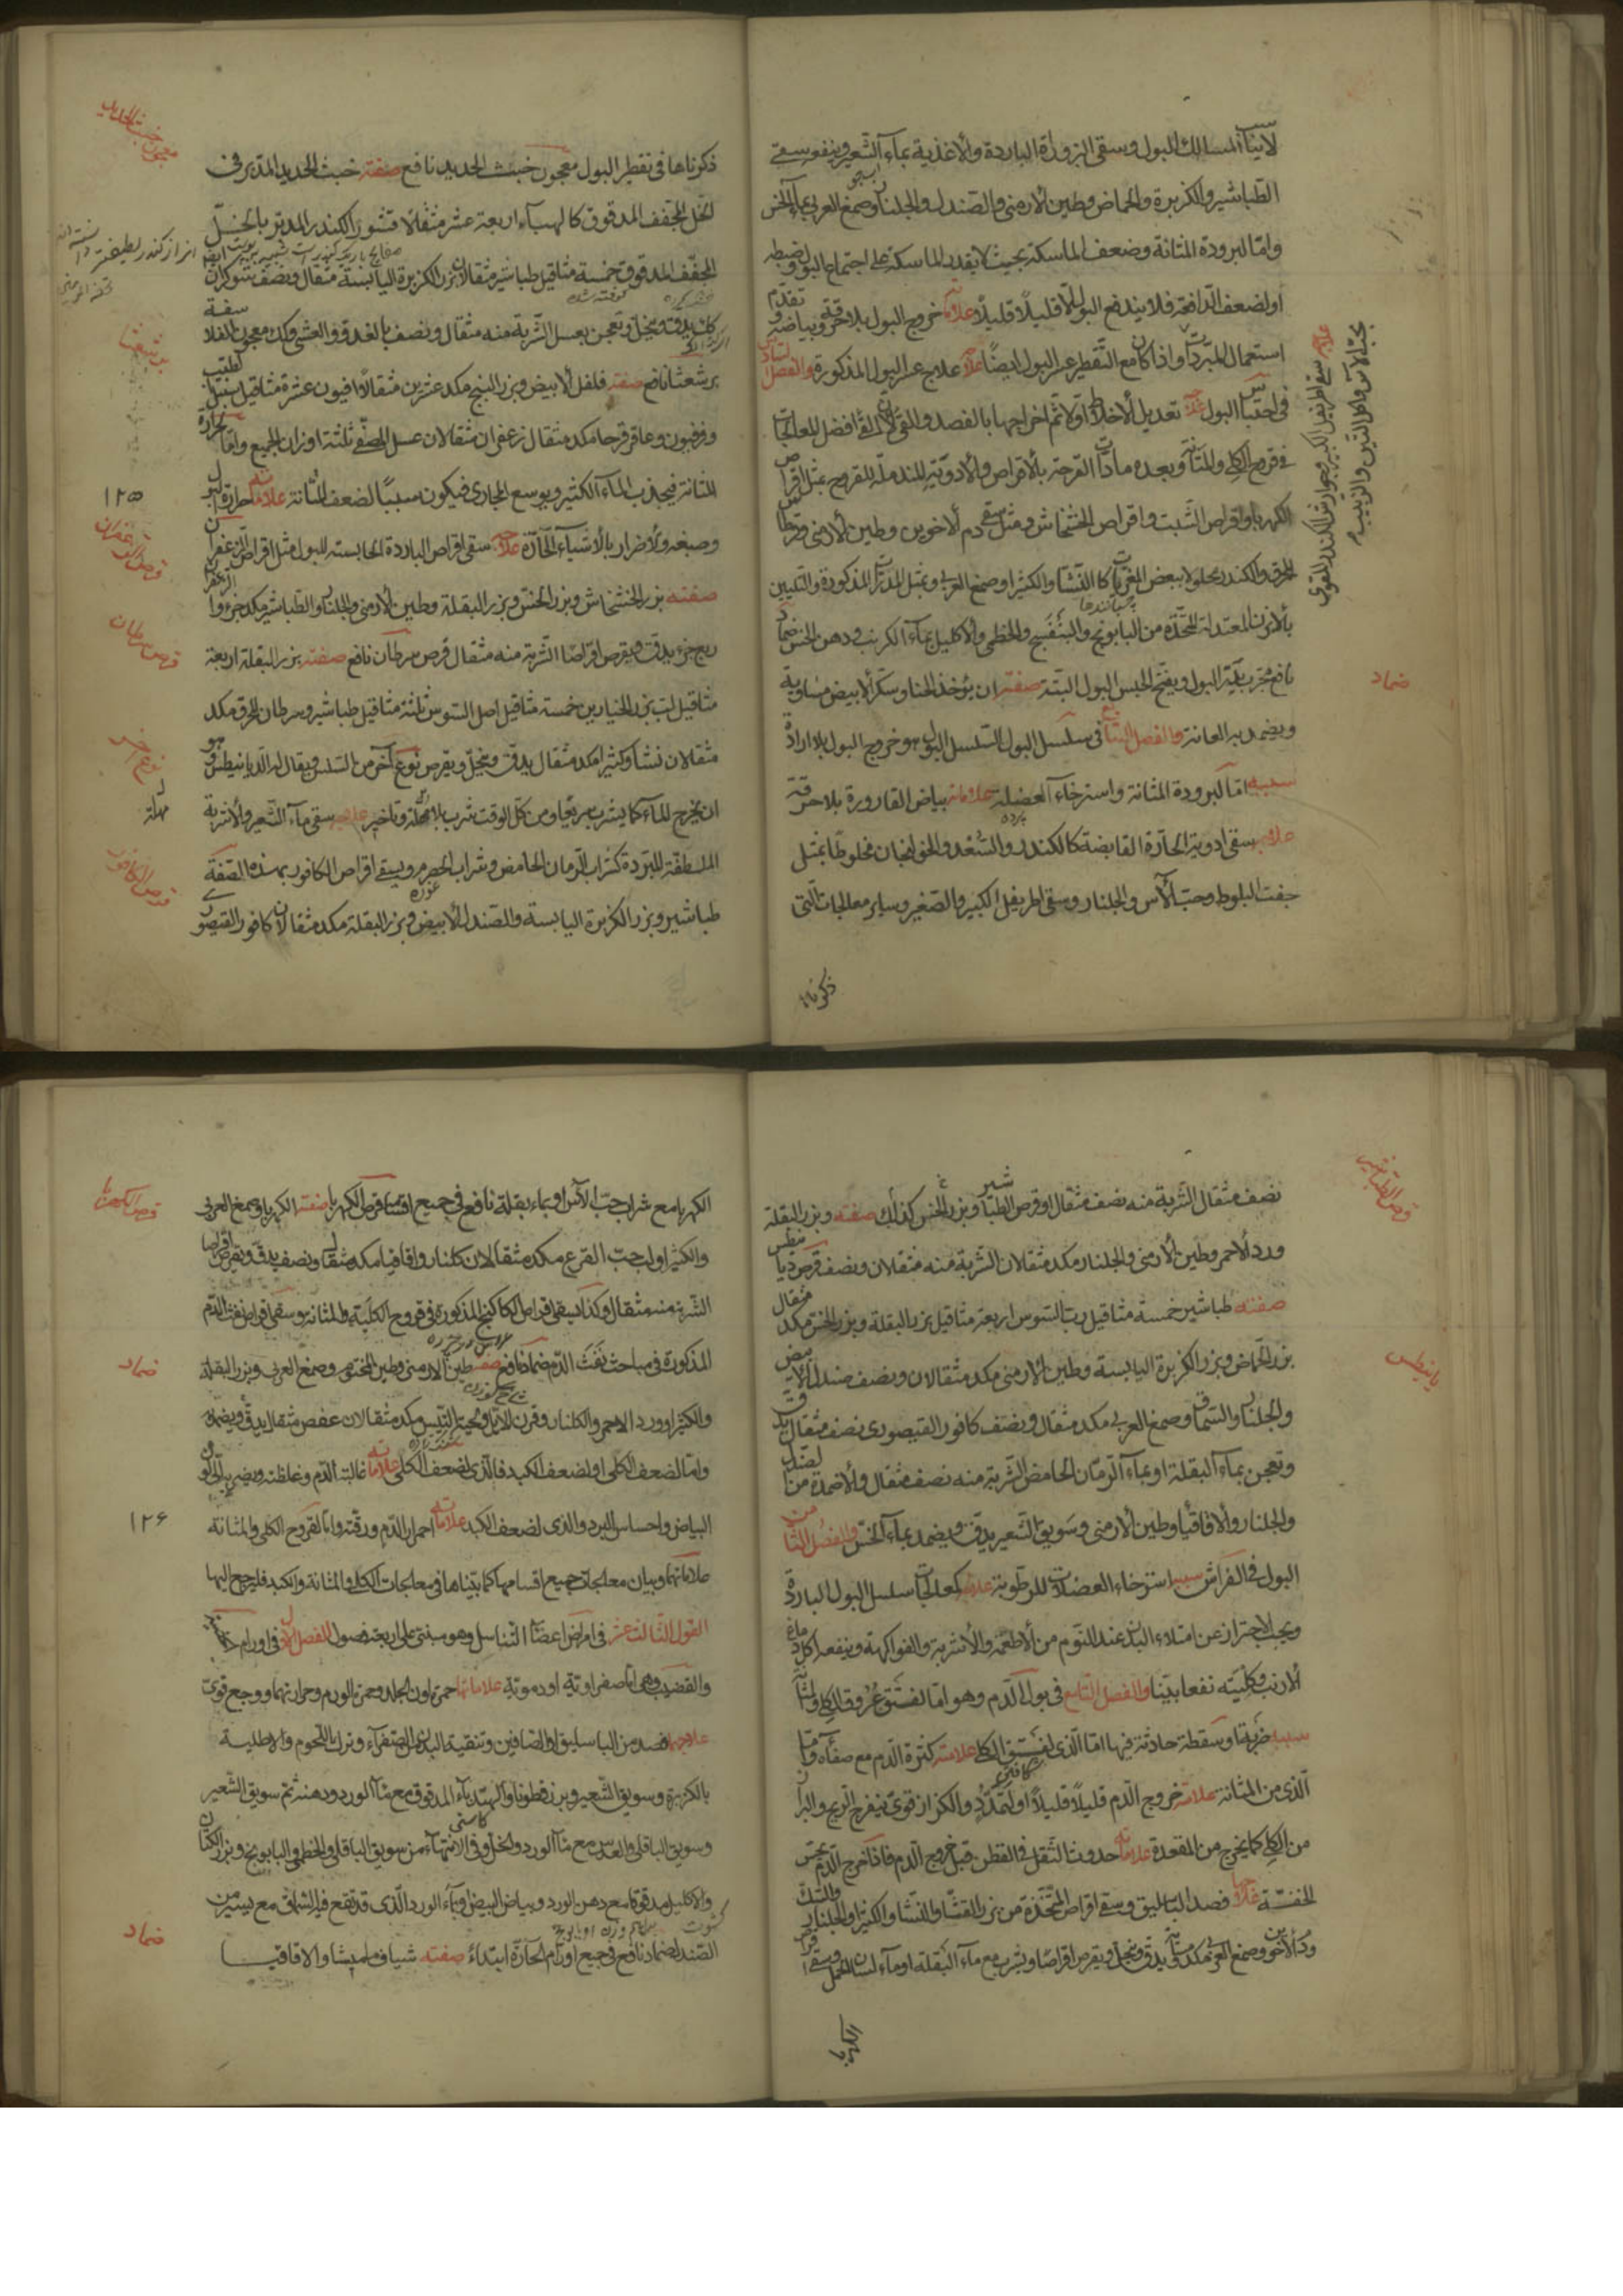 لانبآ المسالك للبول وسقى البزور الباردة والأغذية بمآء الشعير وينفع سقى
الطباشير والكزبرة والحماض وطين الأرمنى والصندل والجلنار وصمغ العربى بمآء الخس
وامّا لبرودة المثانة وضعف الماسكة بحيث لا يقدر الماسكة على اجتماع البول وضبطه
او لضعف الدّافعة فلا يندفع البول الّا قليلاً قليلاً علاماته خروج البول بلا حرقة وبياضه
استعمال المبردات واذا كان مع التّقطير عسر البول ايضًا علاجه علاج عسر البول المذكورة والفصل السّادس
فى احتباس البول علاجه تعديل الأخلاط اوّلا ثم اخراجها بالفصد والقئ لأن القئ افضل المعالجات
فى قروح الكلى والمثانة وبعده مادات القرحة بالأقراص والأدوية المندملة للقروح بمثل اقراص
الكهربا واقراص الشبت واقراص الخشخاش ومثل سقى دم الأخوين وطين الأرمنى وقرطاس
المحرق والكندر مخلوط ببعض المغريات كالنشا والكثيرا وصمغ العربى وبمثل المدرات المذكورة والتكين
بالأبزن المعتدلة المتخذة من البابونج والبنفسج والخطمى والأكليل بمآء الكرنب ودهن الخس ضماد
نافع مجرب يحلّ البول ويفتح الحبس البول البتة صفته ان يؤخذ الحنا وسكر الأبيض مساوية
ويضمد به العانة والفصل السابع فى سلسل البول السلسل البول هو خروج البول بلا ارادة
سببه امّا لبرودة المثانة واسترخاء العضلة علاماته بياض القارورة بلا حرقة
علاجه سقى ادوية الحارّة القابضة كالكندر والسّعد والخولنجان مخلوطًا بمثل
جفت البلوط وحبّ الآس والجلنار وسقى اطريفل الكبير والصّغير وساير معالجات الّتى
ذكرناها
علاجه سقى اطريفل الكبير وجوارش الكندر المقوى
بحبّ الآس واكل التين والزبيب
ضماد
ذكرناها فى تقطير البول معجون خبث الحديد نافع صفته خبث الحديد المدبر فى
الخل المجفف المدقوق كالهبآء اربعة عشر مثقالًا قشور الكندر المدبر بالخلّ
المجفّف المدقوق خمسة مثاقيل طباشير مثقالان بزر الكزبرة اليابسة مثقال ونصف شوكران
كلّ يدقّ وينخل ويعجن بعسل الشّربة منه مثقال ونصف بالغدوّ والعشى وكك معجون الفلاسفة
برشعثا نافع صفته فلفل الأبيض وبزر البنج مكد عشرين مثقالًا افيون عشرة مثاقيل سنبل الطيب
وفرفيون وعاقرقرحا مكد مثقال زعفران مثقالان عسل المصفّى ثلثة اوزان الجميع وامّا لحرارة
المثانة فيجذب المآء الكثير ويوسع المجارى فيكون سببًا لضعف المثانة علاماته حرارة البول
وصبغه والأضرار بالأشيآء الحارّة علاجه سقى اقراص الباردة الحابسته للبول مثل اقراص الزعفران
صفته بزر الخشخاش وبزر الخس وبزر البقلة وطين الأرمنى والجلنار والطباشير مكد جزء والزعفران
ربع جزء يدقّ ويقرص اقراصًا الشّربة منه مثقال قرص سرطان نافع صفته بزر البقلة اربعة
مثاقيل لبّ بزر الخيارين خمسة مثاقيل اصل السّوس ثلثة مثاقيل طباشير وسرطان المحرق مكد
مثقالان نشا وكثيرا مكد مثقال يدقّ وينخل ويقرص نوع آخر من السّلسل ويقال له الدّيانيطس وهو
ان يخرج المآء كما يشرب سريعًا ومن كلّ الوقت شرب بلا مهلة وتأخير علاجه سقى مآء الشّعير والأشربة
الملطفة المبردة كشراب الرّمان الحامض وشراب الحصرم ويسقى اقراص الكافور بهذه الصّفة
طباشير وبزر الكزبرة اليابسة والصّندل الأبيض وبزر البقلة مكد مثقالان كافور القيصورى
معجون خبث الحديد
برشعثا
١٢٥
قرص الزعفران
قرص سرطان
نوع آخر
مهلة
قرص الكافور
نصف مثقال الشّربة منه نصف مثقال او قرص الطباشير وبزر الخس كذلك صفته وبزر البقلة
ورد الأحمر وطين الأرمنى والجلنار مكد مثقلان الشّربة منه مثقلان ونصف قرص ديانيطس
صفته طباشير خمسة مثاقيل ربّ السّوس اربعة مثاقيل بزر البقلة وبزر الخس مكد مثقال
بزر الحمّاض وبزر الكزبرة اليابسة وطين الأرمنى مكد مثقالان ونصف صندل الأبيض
والجلنار والسّماق وصمغ العربى مكد مثقال ونصف كافور القيصورى نصف مثقال يدقّ
وتعجن بمآء البقلة او بمآء الرّمان الحامض الشّربة منه نصف مثقال والأضمدة من الصّندل
والجلنار والأفاقيا وطين الأرمنى وسويق الشّعير يدقّ ويضمد بمآء الخسّ والفصل الثّامن
البول فى الفراش سببه استرخاء العضلات للرطوبة علاجه كمعالجات سلسل البول الباردة
ويجب الأحتراز عن امتلاء البدن عند النّوم من الأطعمة والأشربة والفواكهة وينفعه اكل دماغ
الأرنب وكليته نفعًا بيّنا والفصل التّاسع فى بول الدّم وهو امّا لفتق عروق الكلى والمثانة
سببه ضربة او سقطة حادثة فيها امّا الّذى لفتق الكلى علامته كثرة الدّم مع صفائه وامّا
الّذى من المثانة علامته خروج الدّم قليلًا قليلًا او لتمدّد والكزاز قوىّ فيفرج الريح والبراز
من الكلى كما يخرج من المقعدة علاماته حدوث الثّقل فى القطن قبل خروج الدّم فاذا خرج الدّم يحسّ
الخفّة علاجه فصد الباسليق وسقى اقراص المتّخذة من بزر القثّا والنّشا والكثيرا والجلنار والسّك
ودم الأخوين وصمغ العربى مكد يدقّ وينخل ويقرص اقراصًا ويشرب مع مآء البقلة او مآء لسان الحمل وسقى اقراص
الكهربا
قرص الطباشير
الكهربا مع شراب حبّ الآس او بماء بقلة نافع فى جميع اقسامه قرص الكهربا صفته الكهربا وصمغ العربى
والكثيرا ولب حبّ القرع مكد مثقالان كلنار واقاقيا مكد مثقال ونصف يدقّ ويقرص اقراصا
الشّربة منه مثقال وكذا يسقى اقراص الكاكنج المذكورة فى قروح الكلية والمثانة وسقى اقراص نفث الدّم
المذكورة فى مباحث نفث الدّم ضماد نافع صفته طين الأرمنى وطين المختوم وصمغ العربى وبزر البقلة
والكثيرا وورد الاحمر والكلنار وقرن الأيل ولحية التّيس مكد مثقالان عفص مثقال يدقّ ويضمد به
وامّا لضعف الكلى او لضعف الكبد فالّذى لضعف الكلى علاماته غالبة الدّم وغلظته ويضرب الى لون
البياض واحساس البرد والذى لضعف الكبد علاماته احمرار الدّم ورقّته وامّا لقروح الكلى والمثانة
علاماتهما وبيان معالجات جميع اقسامها كما بيّناها فى معالجات الكلى والمثانة والكبد فليرجع اليها
القول الثّالث عشر فى امراض اعضآ التّناسل وهو مبنى على اربعة فصول الفصل الاوّل فى اورام
والقضيب وهى امّا صفراويّة او دمويّة علاماتها حمرة لون الجلد وحمرة الورم وحرارتهما ووجع قوىّ
علاجها فصد من الباسليق او الصّافن وتنقية البدن من الصّفرآء وترك اللّحوم والاطلية
بالكزبرة وسويق الشّعير وبزر قطونا والهندبآء المدقوق مع مآ الورد ودهنه ثمّ سويق الشّعير
وسويق الباقلى والعدس مع مآ الورد والخل وفى الانتهآء من سويق الباقلى والخطمى والبابونج وبزر الكتّان
والاكليل مدقوقا مع دهن الورد وبياض البيض وبمآء الورد الّذى قد نقع فيه السّماق مع يسير من
الصّندل ضماد نافع فى جميع اورام الحارّة ابتداءً صفته شياف ماميشا والاقاقيا
قرص الكهربا
ضماد
١٢۶
ضماد